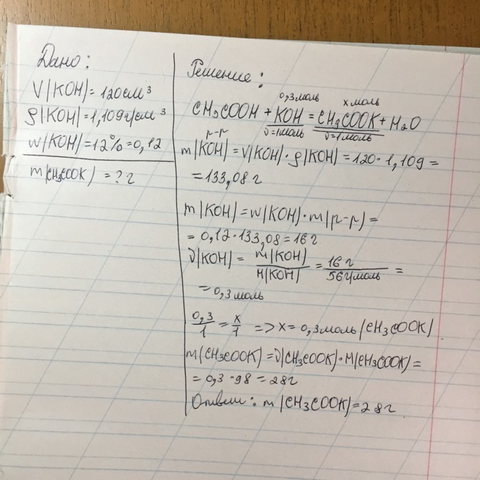 Дано:
V(KOH)=120см³
ρ(KOH)=1,109г/см³
w(KOH)=12%=0,12
m(CH₃COOK)=? г
Решение:
0,3моль x моль
CH₃COOH+KOH=CH₃COOK+H₂O
ν=1моль ν=1моль
р-р
m(KOH)=V(KOH)·ρ(KOH)=120·1,109=
=133,08г
m(KOH)=w(KOH)·m(р-р)=
=0,12·133,08=16г
ν(KOH)=m(KOH)/M(KOH)=16г/56г/моль=
=0,3моль
0,3/1=x/1 => x=0,3моль(CH₃COOK)
m(CH₃COOK)=ν(CH₃COOK)·M(CH₃COOK)=
=0,3·98=28г
Ответ: m(CH₃COOK)=28г